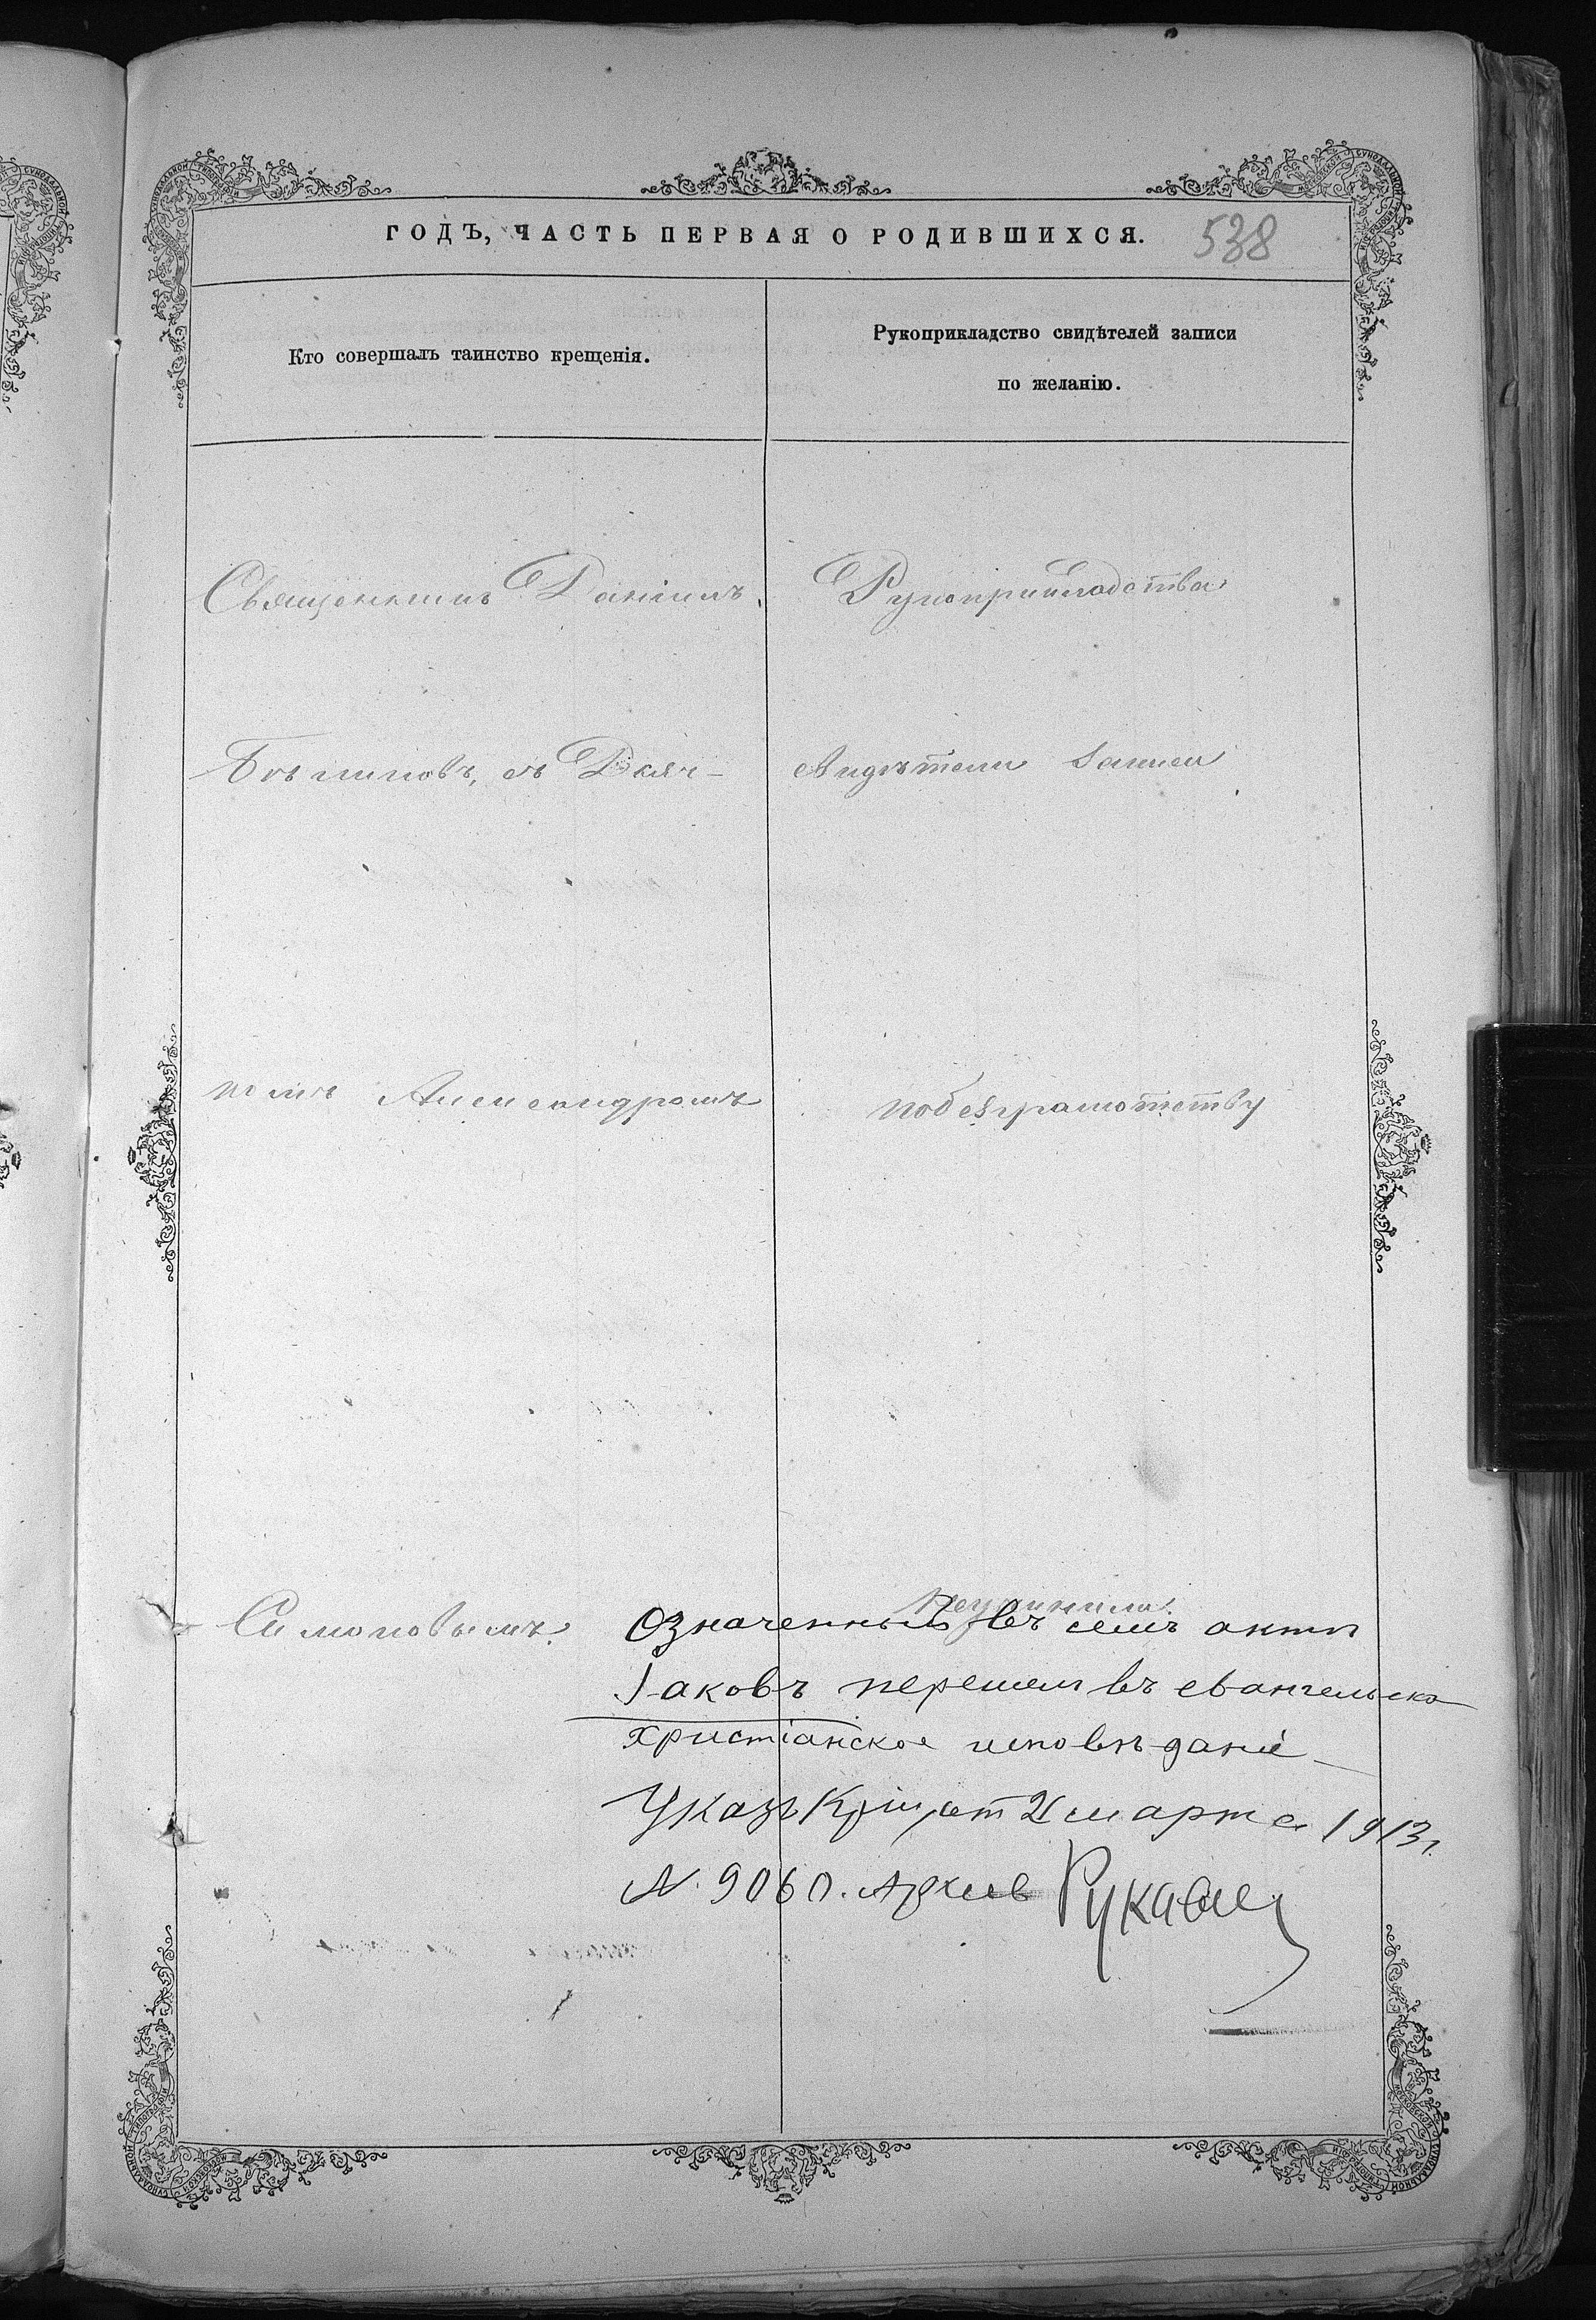 ГОДЪ, ЧАСТЬ ПЕРВАЯ О РОДИВШИХСЯ.
538
Кто совершалъ таинство крещенія.
Рукоприкладство свидѣтелей записи
по желанію.
Священникъ Даніилъ
Рукоприкладства
съ Дьяч-
свидѣтели записи
комъ Александромъ
по безграмотству
Симоновымъ.
неучинили.
Означенный въ семъ акти
Іаковъ перешелъ въ евангельско
христіанское исповѣданіе
Указъ от 21 марта 1913 г.
N. 9060. Архив